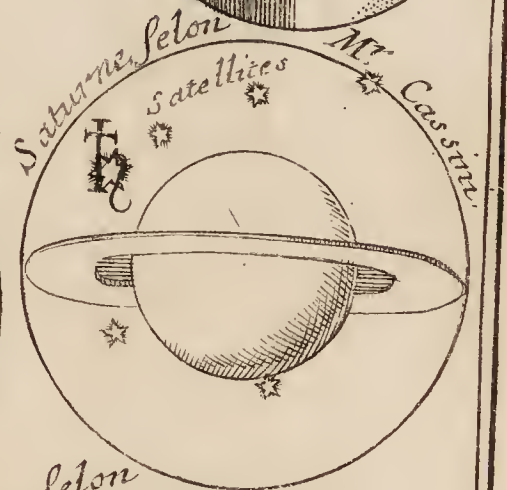 Saturne, selon Mr. Cassini.
Satellites
♄
selon